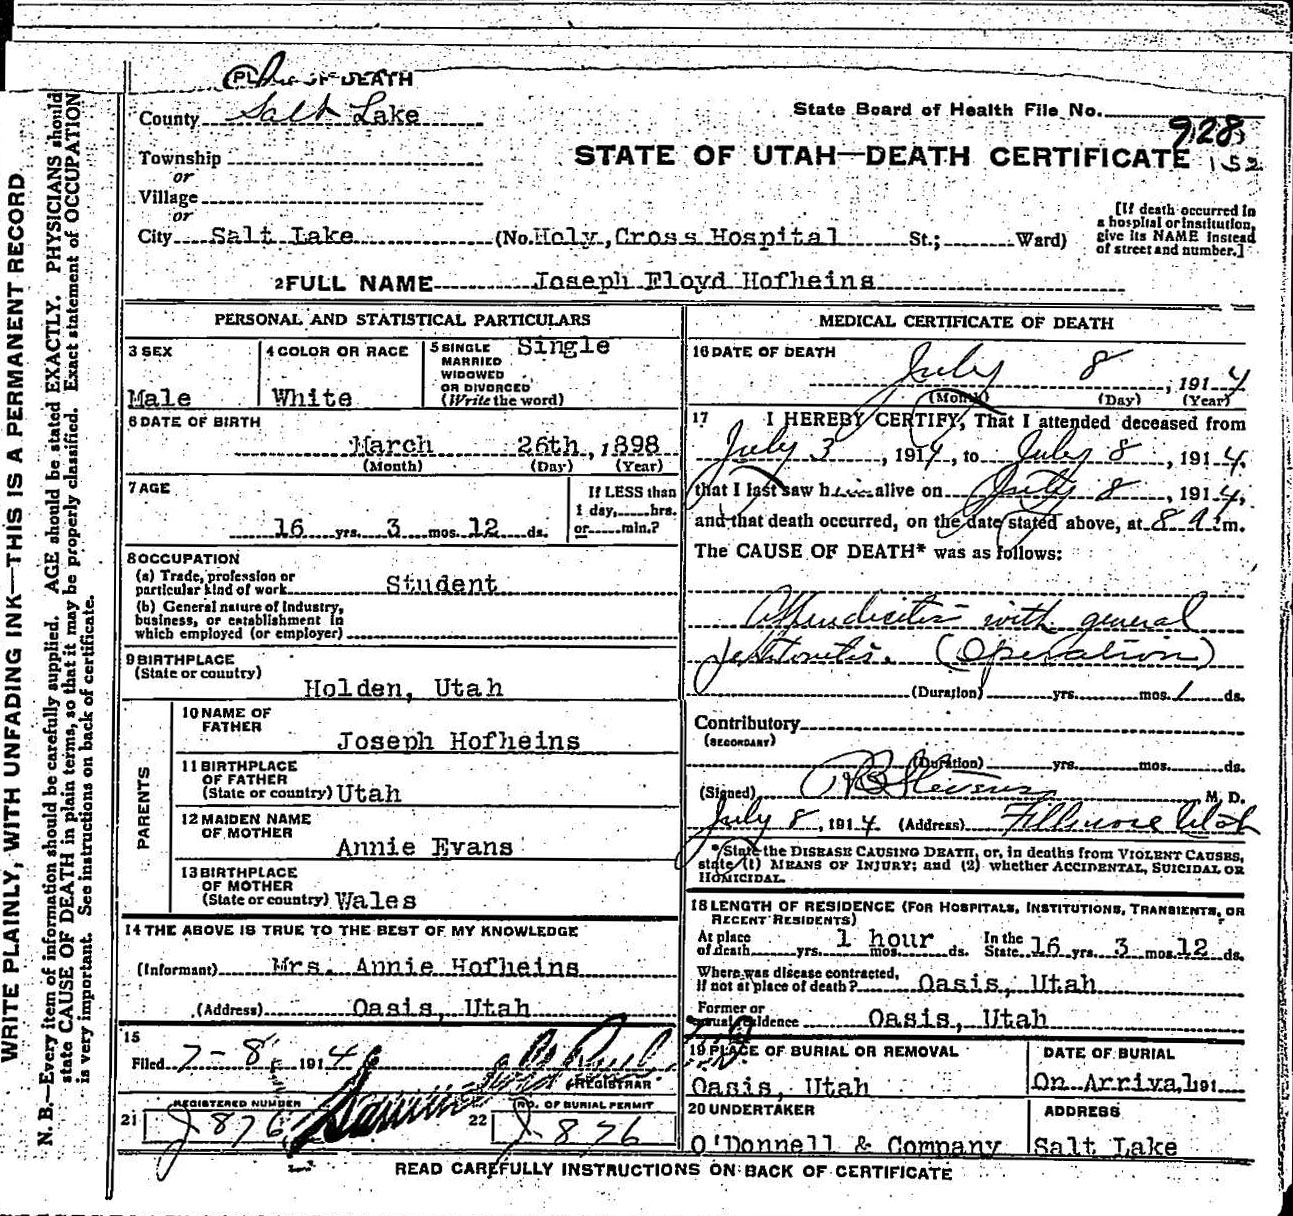 PLACE OF DEATH
County Salt Lake
State Board of Health File No. 928
152
STATE OF UTAH—DEATH CERTIFICATE
Township
or
Village
or
City Salt Lake (No. Holy Cross Hospital St.; Ward)
[If death occurred in a hospital or institution, give its NAME instead of street and number.]
2 FULL NAME Joseph Floyd Hofheins
PERSONAL AND STATISTICAL PARTICULARS
3 SEX
Male
4 COLOR OR RACE
White
5 SINGLE MARRIED WIDOWED OR DIVORCED (Write the word) Single
6 DATE OF BIRTH
March 26th, 1898
(Month) (Day) (Year)
7 AGE
16 yrs. 3 mos. 12 ds.
If LESS than 1 day, hrs. or min.?
8 OCCUPATION
(a) Trade, profession or particular kind of work Student
(b) General nature of Industry, business, or establishment in which employed (or employer)
9 BIRTHPLACE
(State or country)
Holden, Utah
PARENTS
10 NAME OF FATHER
Joseph Hofheins
11 BIRTHPLACE OF FATHER
(State or country) Utah
12 MAIDEN NAME OF MOTHER
Annie Evans
13 BIRTHPLACE OF MOTHER
(State or country) Wales
14 THE ABOVE IS TRUE TO THE BEST OF MY KNOWLEDGE
(Informant) Mrs. Annie Hofheins
(Address) Oasis, Utah
15
Filed 7-8 1914
REGISTRAR
21 REGISTERED NUMBER
J-876
22 NO. OF BURIAL PERMIT
J-876
MEDICAL CERTIFICATE OF DEATH
16 DATE OF DEATH
July 8, 1914
(Month) (Day) (Year)
17 I HEREBY CERTIFY, That I attended deceased from
July 3, 1914, to July 8, 1914,
that I last saw him alive on July 8, 1914,
and that death occurred, on the date stated above, at 8 a m.
The CAUSE OF DEATH* was as follows:
Appendicitis with general
peritonitis. (Operation)
(Duration) yrs. mos. 1 ds.
Contributory
(SECONDARY)
(Duration) yrs. mos. ds.
(Signed) Stevens M. D.
July 8, 1914. (Address) Fillmore Utah
*State the DISEASE CAUSING DEATH, or, in deaths from VIOLENT CAUSES,
state (1) MEANS OF INJURY; and (2) whether ACCIDENTAL, SUICIDAL OR
HOMICIDAL.
18 LENGTH OF RESIDENCE (FOR HOSPITALS, INSTITUTIONS, TRANSIENTS, OR
RECENT RESIDENTS)
At place of death yrs. 1 hour mos. ds. In the State 16 yrs. 3 mos. 12 ds.
Where was disease contracted, If not at place of death? Oasis, Utah
Former or usual residence Oasis, Utah
19 PLACE OF BURIAL OR REMOVAL
Oasis, Utah
DATE OF BURIAL
On Arrival, 191
20 UNDERTAKER
O'Donnell & Company
ADDRESS
Salt Lake
READ CAREFULLY INSTRUCTIONS ON BACK OF CERTIFICATE
WRITE PLAINLY, WITH UNFADING INK—THIS IS A PERMANENT RECORD
N. B.—Every item of information should be carefully supplied. AGE should be stated EXACTLY. PHYSICIANS should
state CAUSE OF DEATH in plain terms, so that it may be properly classified. Exact statement of OCCUPATION
is very important. See instructions on back of certificate.